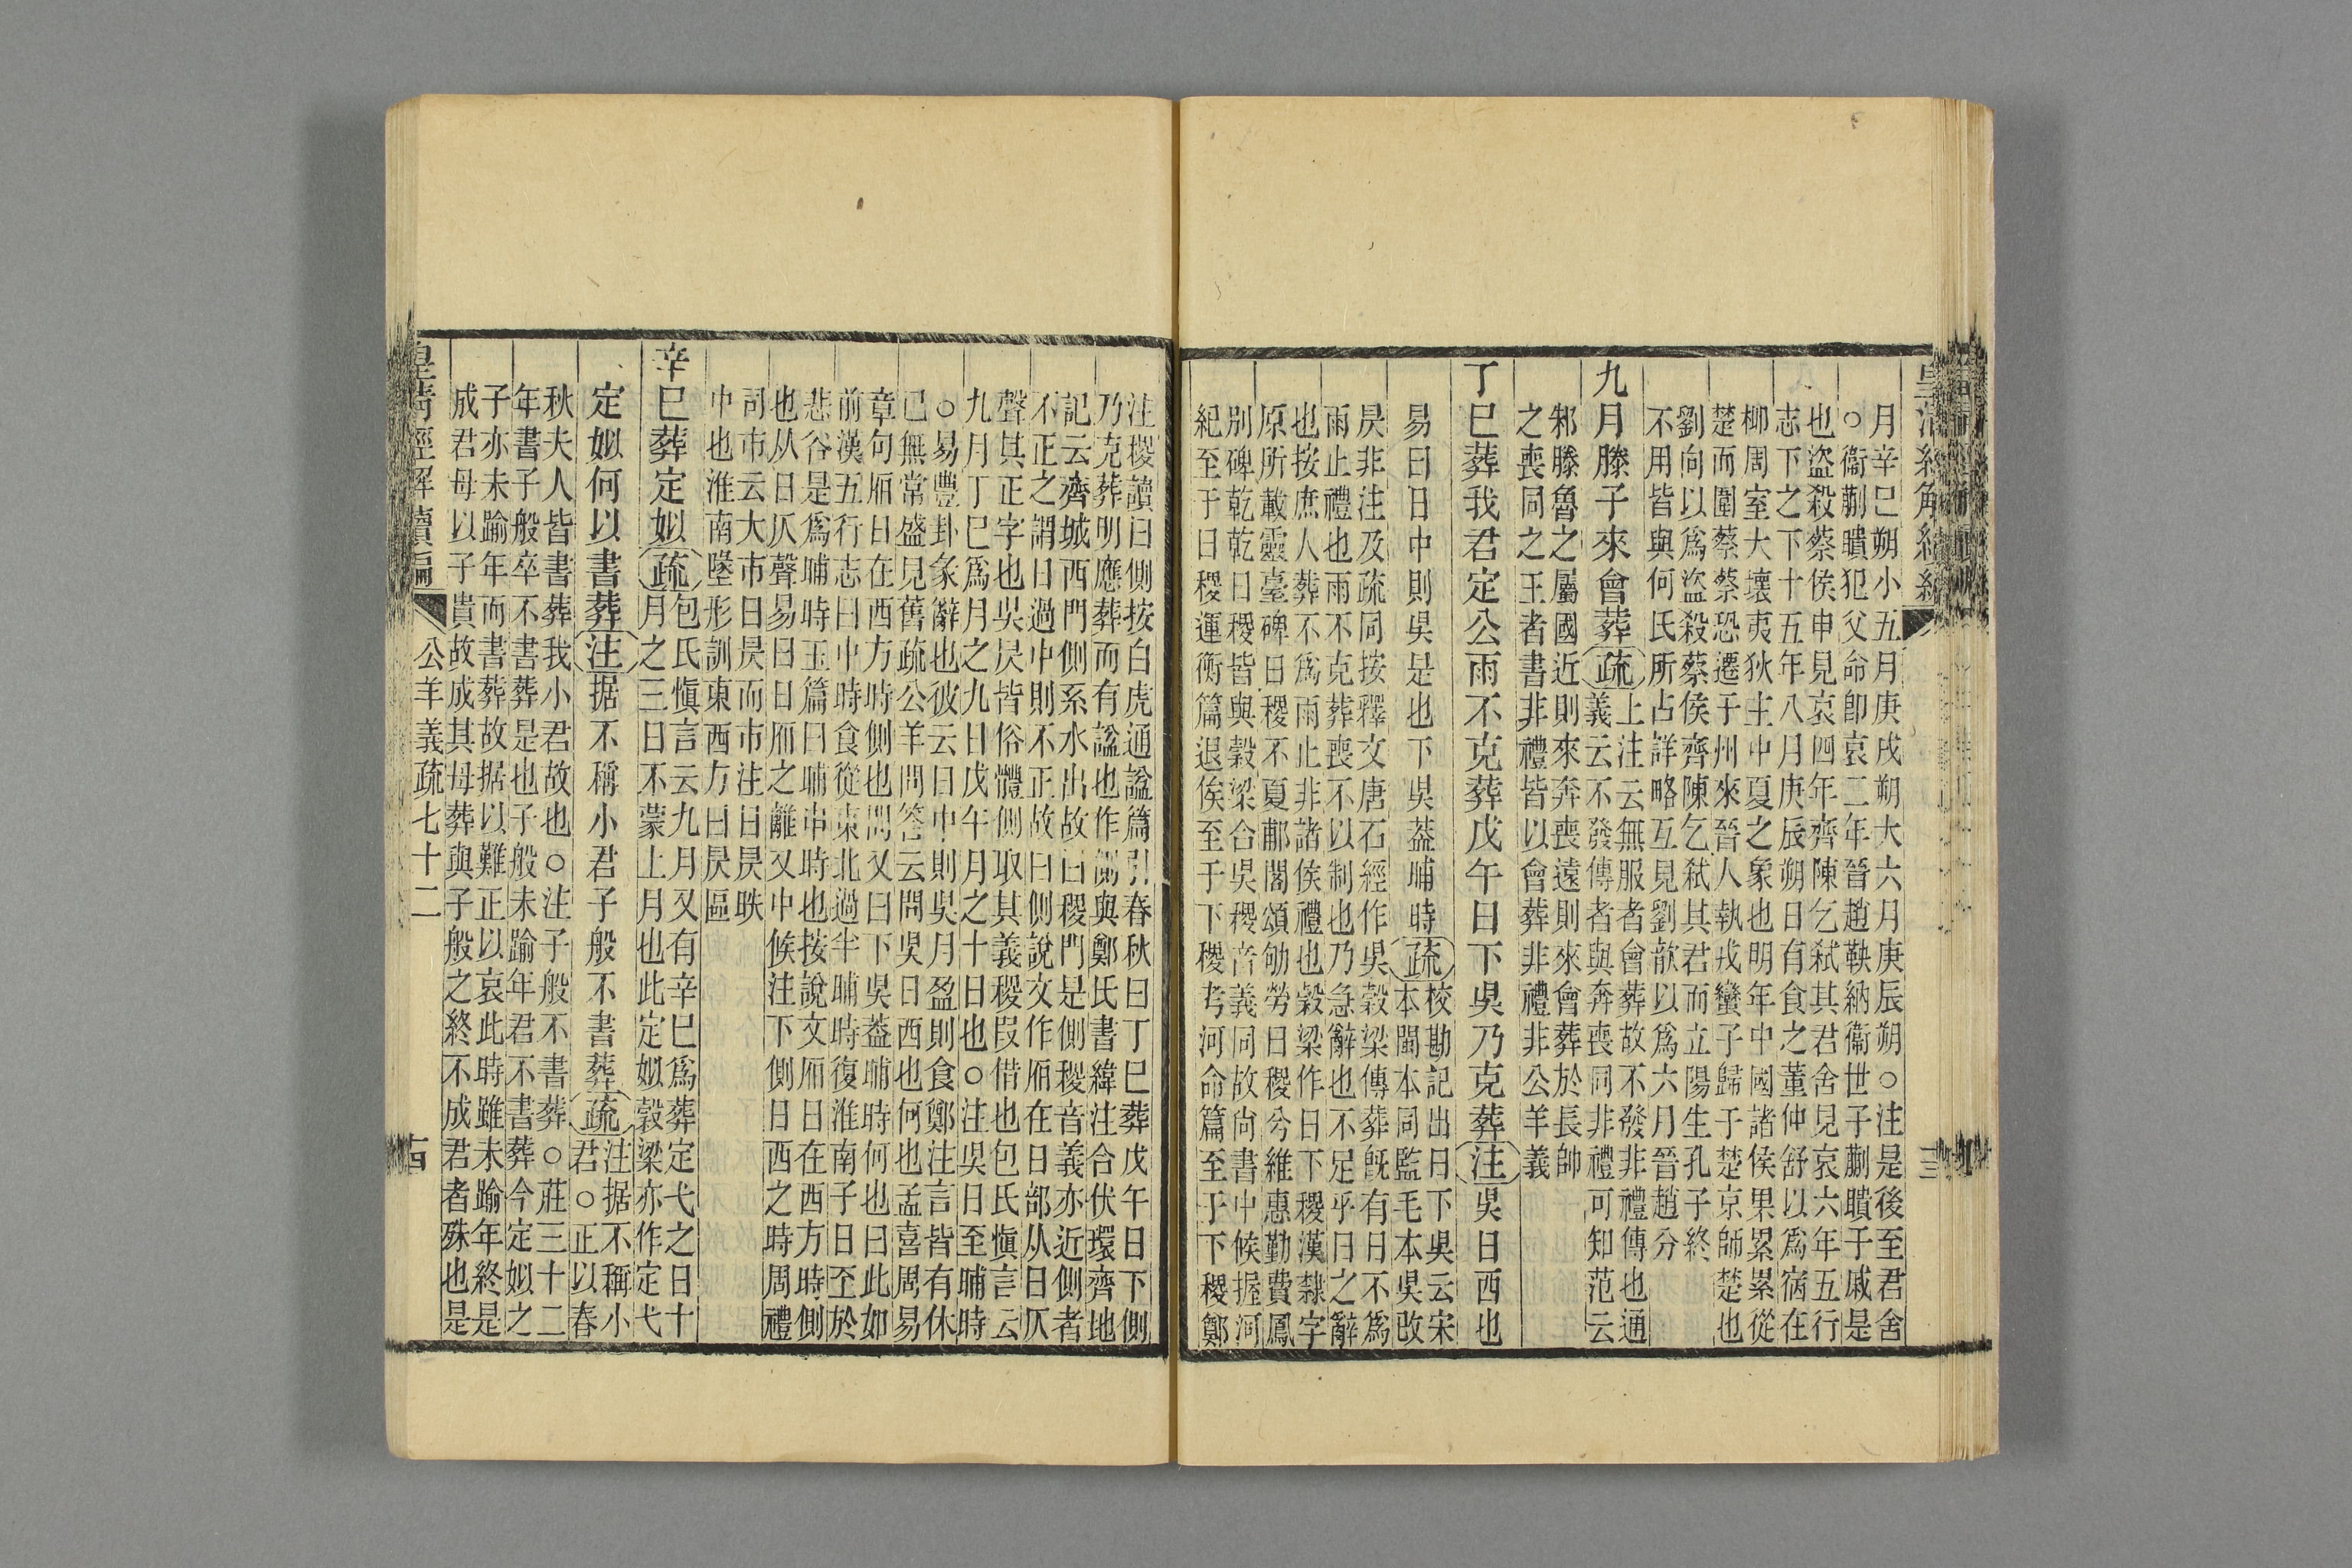 月辛巳朔小五月庚戌朔大六月庚辰朔○注是後至君舍
○衞蒯聵犯父命卽哀二年晉趙鞅納衞世子蒯聵于戚是
也盜殺蔡侯申見哀四年齊陳乞弒其君舍見哀六年五行
志下之下十五年八月庚辰朔日有食之董仲舒以爲宿在
柳周室大壞夷狄主中夏之象也明年中國諸侯果累累從
楚而圍蔡蔡恐遷于州來晉人執戎蠻子歸于楚京師楚也
劉向以爲盜殺蔡侯齊陳乞弒其君而立陽生孔子終
不用皆與何氏所占詳略互見劉歆以爲六月晉趙分
九月滕子來會葬疏上注云無服者會葬故不發非禮傳也通
義云不發傳者與奔喪同非禮可知范云
邾滕魯之屬國近則來奔喪遠則來會葬於長帥
之喪同之王者書非禮皆以會葬非禮非公羊義
丁巳葬我君定公雨不克葬戊午日下吳乃克葬注吳日西也
易曰日中則吳是也下吳葢晡時疏校勘記出日下吳云宋
本閩本同監毛本吳改
昃非注及疏同按釋文唐石經作吳穀梁傳葬旣有日不爲
雨止禮也雨不克葬喪不以制也乃急辭也不足乎日之辭
也按庶人葬不爲雨止非諸侯禮也穀梁作日下稷漢隸字
原所載靈臺碑日稷不夏郙閣頌劬勞日稷兮維惠勤費鳳
別碑乾乾日稷皆與穀梁合吳稷音義同故尙書中候握河
紀至于日稷運衡篇退俟至于下稷考河命篇至于下稷鄭
注稷讀曰側按白虎通諡篇引春秋曰丁巳葬戊午日下側
乃克葬明應葬而有諡也作側與鄭氏書緯注合伏環齊地
記云齊城西門側系水出故曰稷門是側稷音義亦近側者
不正之謂日過中則不正故曰側說文作厢在日部从日仄
聲其正字也吳昃皆俗體側取其義稷叚借也包氏愼言云
九月丁巳爲月之九日戊午月之十日也○注吳日至晡時
○易豐卦彖辭也彼云日中則吳月盈則食鄭注言皆有休
已無常盛見舊疏公羊問答云問吳日西也何也孟喜周易
章句厢日在西方時側也問又曰下吳葢晡時何也曰此如
前漢五行志曰中時食從東北過半晡時復淮南子日至於
悲谷是爲晡時玉篇曰晡申時也按說文厢日在西方時側
也从日仄聲易曰日厢之離又中候注下側日西之時周禮
司市云大市日昃而市注日昃昳
中也淮南墬形訓東西方曰昃區
辛巳葬定姒疏包氏愼言云九月又有辛巳爲葬定弋之日十
月之三日不蒙上月也此定姒穀梁亦作定弋
定姒何以書葬注据不稱小君子般不書葬疏注据不稱小
君○正以春
秋夫人皆書葬我小君故也○注子般不書葬○莊三十二
年書子般卒不書葬是也子般未踰年君不書葬今定姒之
子亦未踰年而書葬故据以難正以哀此時雖未踰年終是
成君母以子貴故成其母葬與子般之終不成君者殊也是
皇淸經解續編 公羊義疏七十二